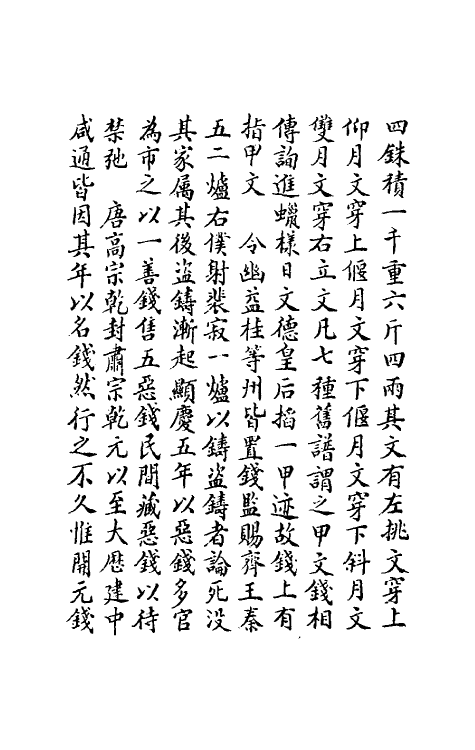 四銖積一千重六斤四兩其文有左挑文穿上
仰月文穿上偃月文穿下偃月文穿下斜月文
雙月文穿右立文凡七種舊譜謂之甲文錢相
傳詢進蠟樣日文德皇后搯一甲迹故錢上有
指甲文　令幽益桂等州皆置錢監賜齊王秦
五二爐右僕射裴寂一爐以鑄盜鑄者論死没
其家属其後盜鑄漸起顯慶五年以惡錢多官
為市之以一善錢售五惡錢民間藏惡錢以待
禁弛　唐高宗乾封肅宗乾元以至大厯建中
咸通皆因其年以名錢然行之不久惟開元錢